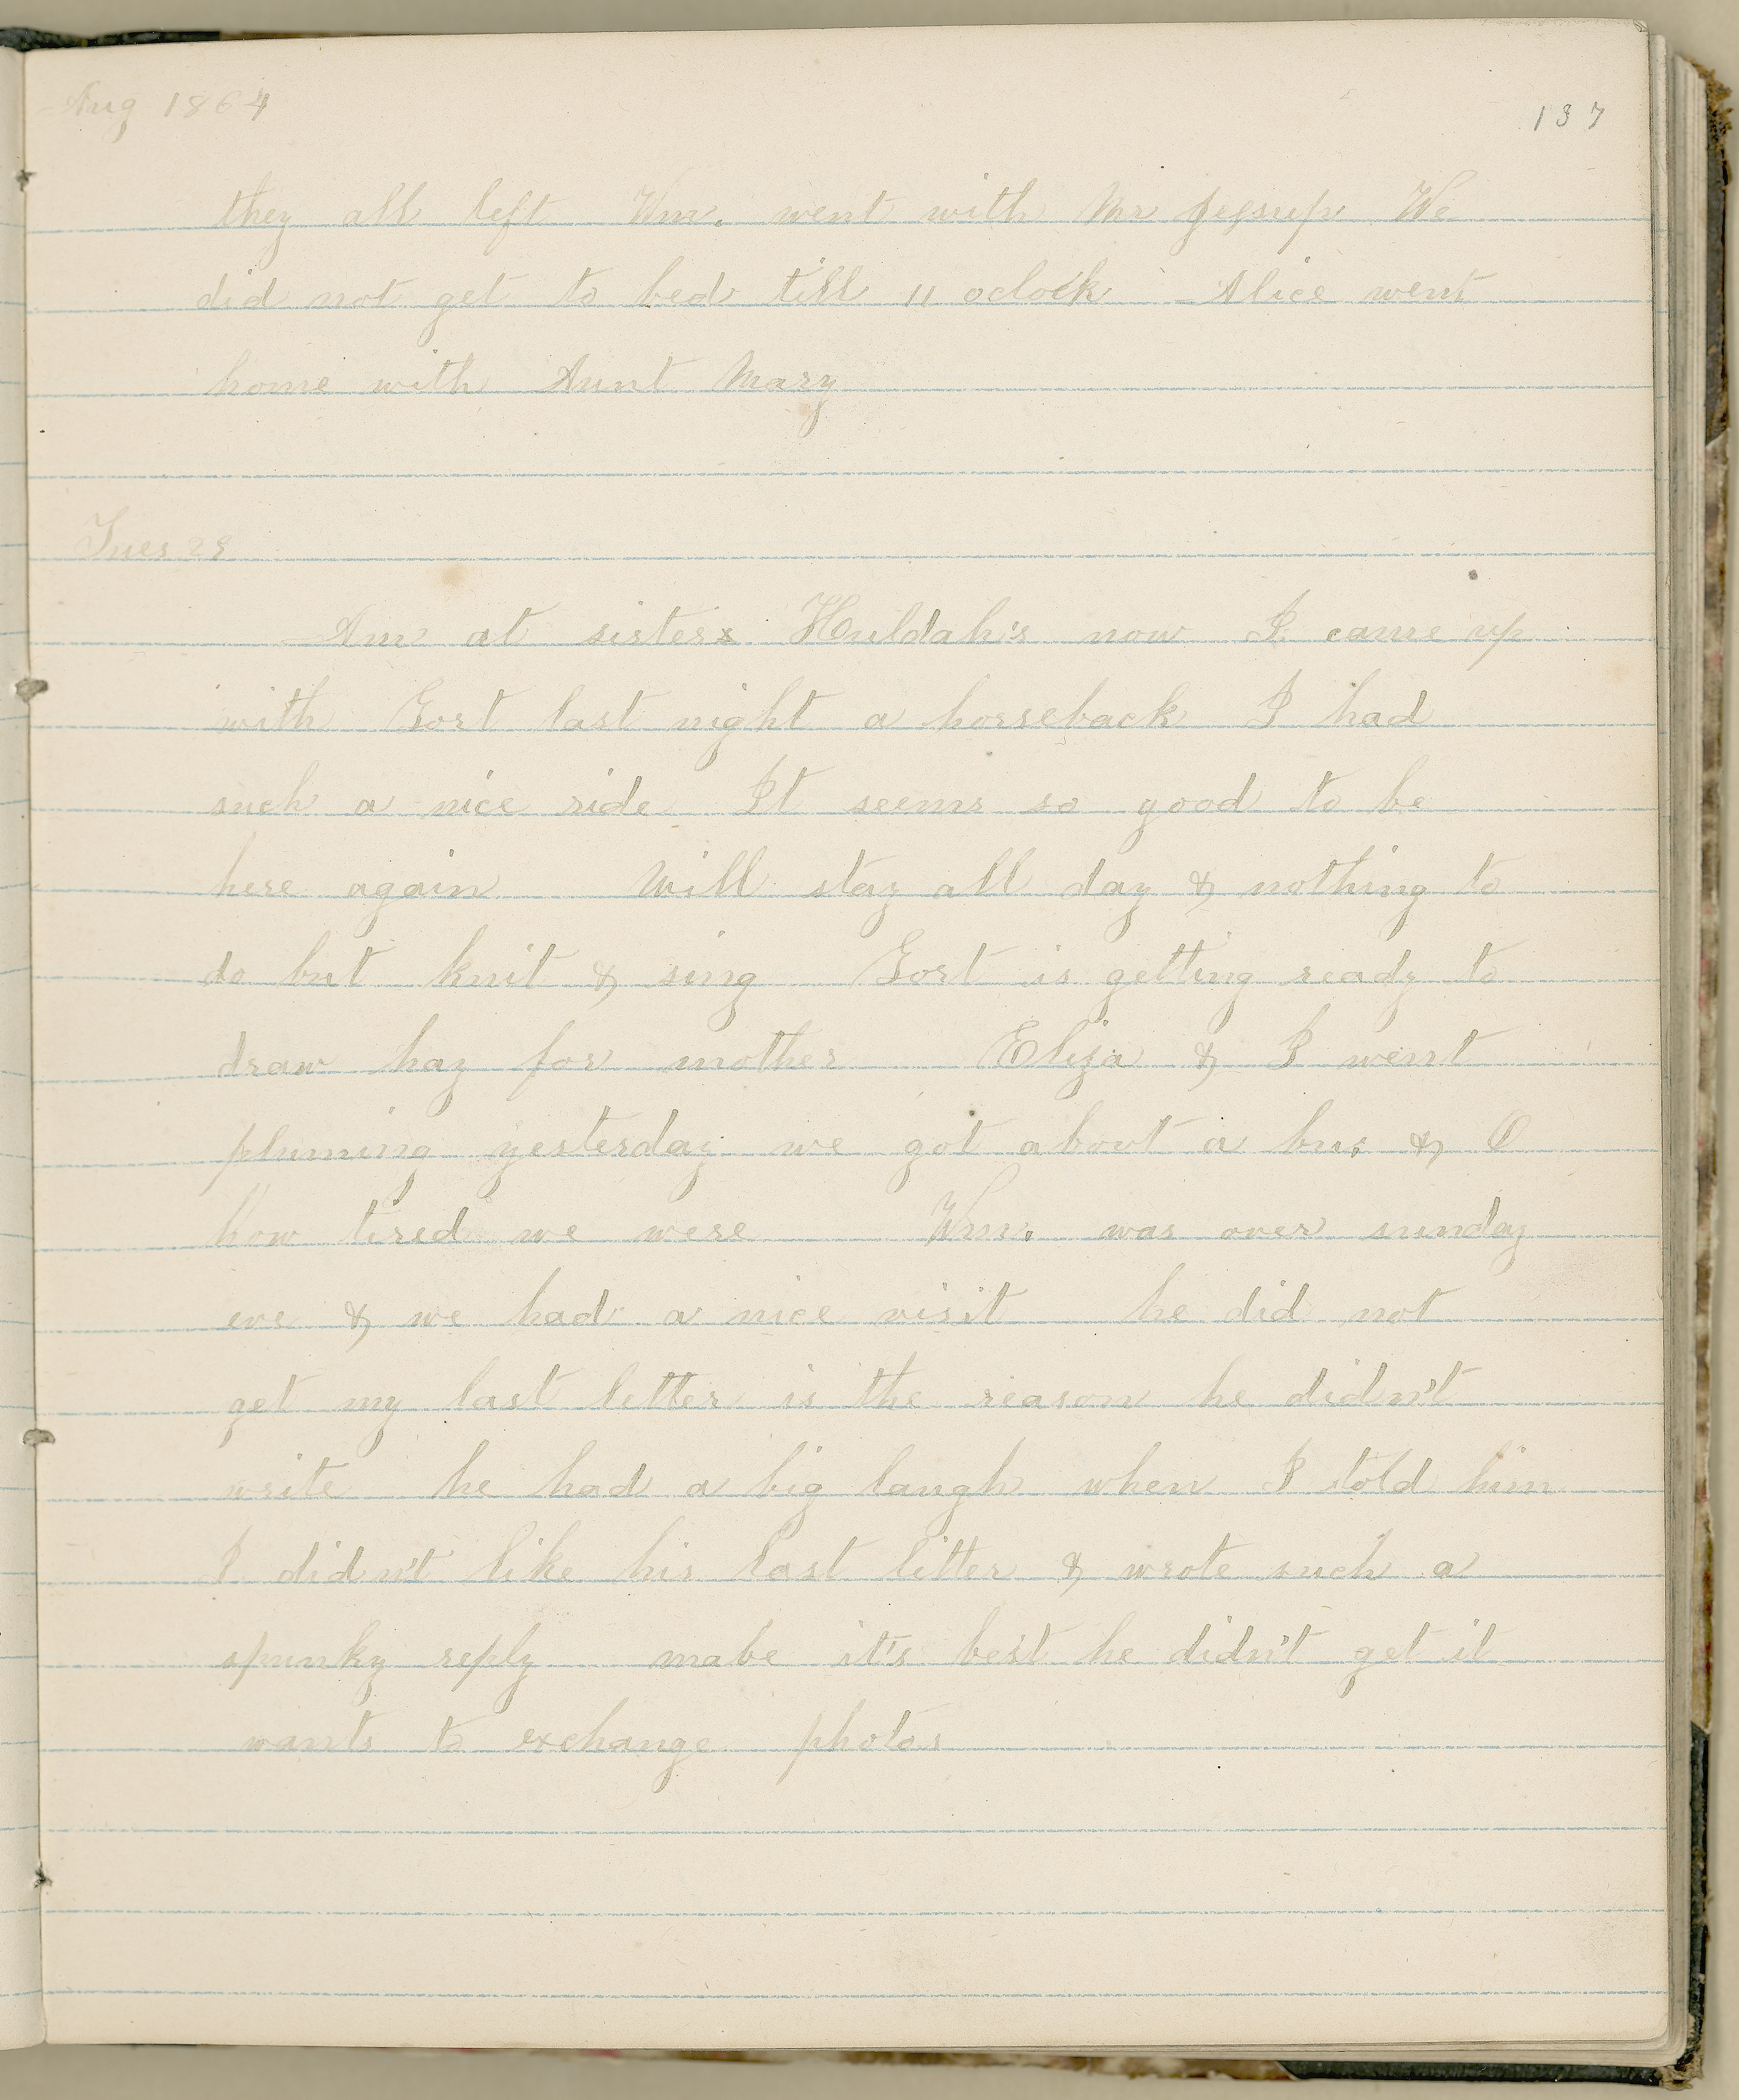 Aug 1864
137
they all left Wm. went with Mr Jessup We
did not get to bed till 11 oclock Alice went
home with Aunt Mary
Tues 23
Am at sisters Huldah's now I came up
with Gort last night a horseback I had
such a nice ride It seems so good to be
here again Will stay all day & nothing to
do but knit & sing Gort is getting ready to
draw hay for mother Eliza & I went
pluming yesterday we got about a bu. & O
how tired we were Wm. was over sunday
eve & we had a nice visit he did not
get my last letter is the reason he didn't
write he had a big laugh when I told him
I didn't like his last letter & wrote such a
spunky reply mabe it's best he didn't get it
wants to exchange photos